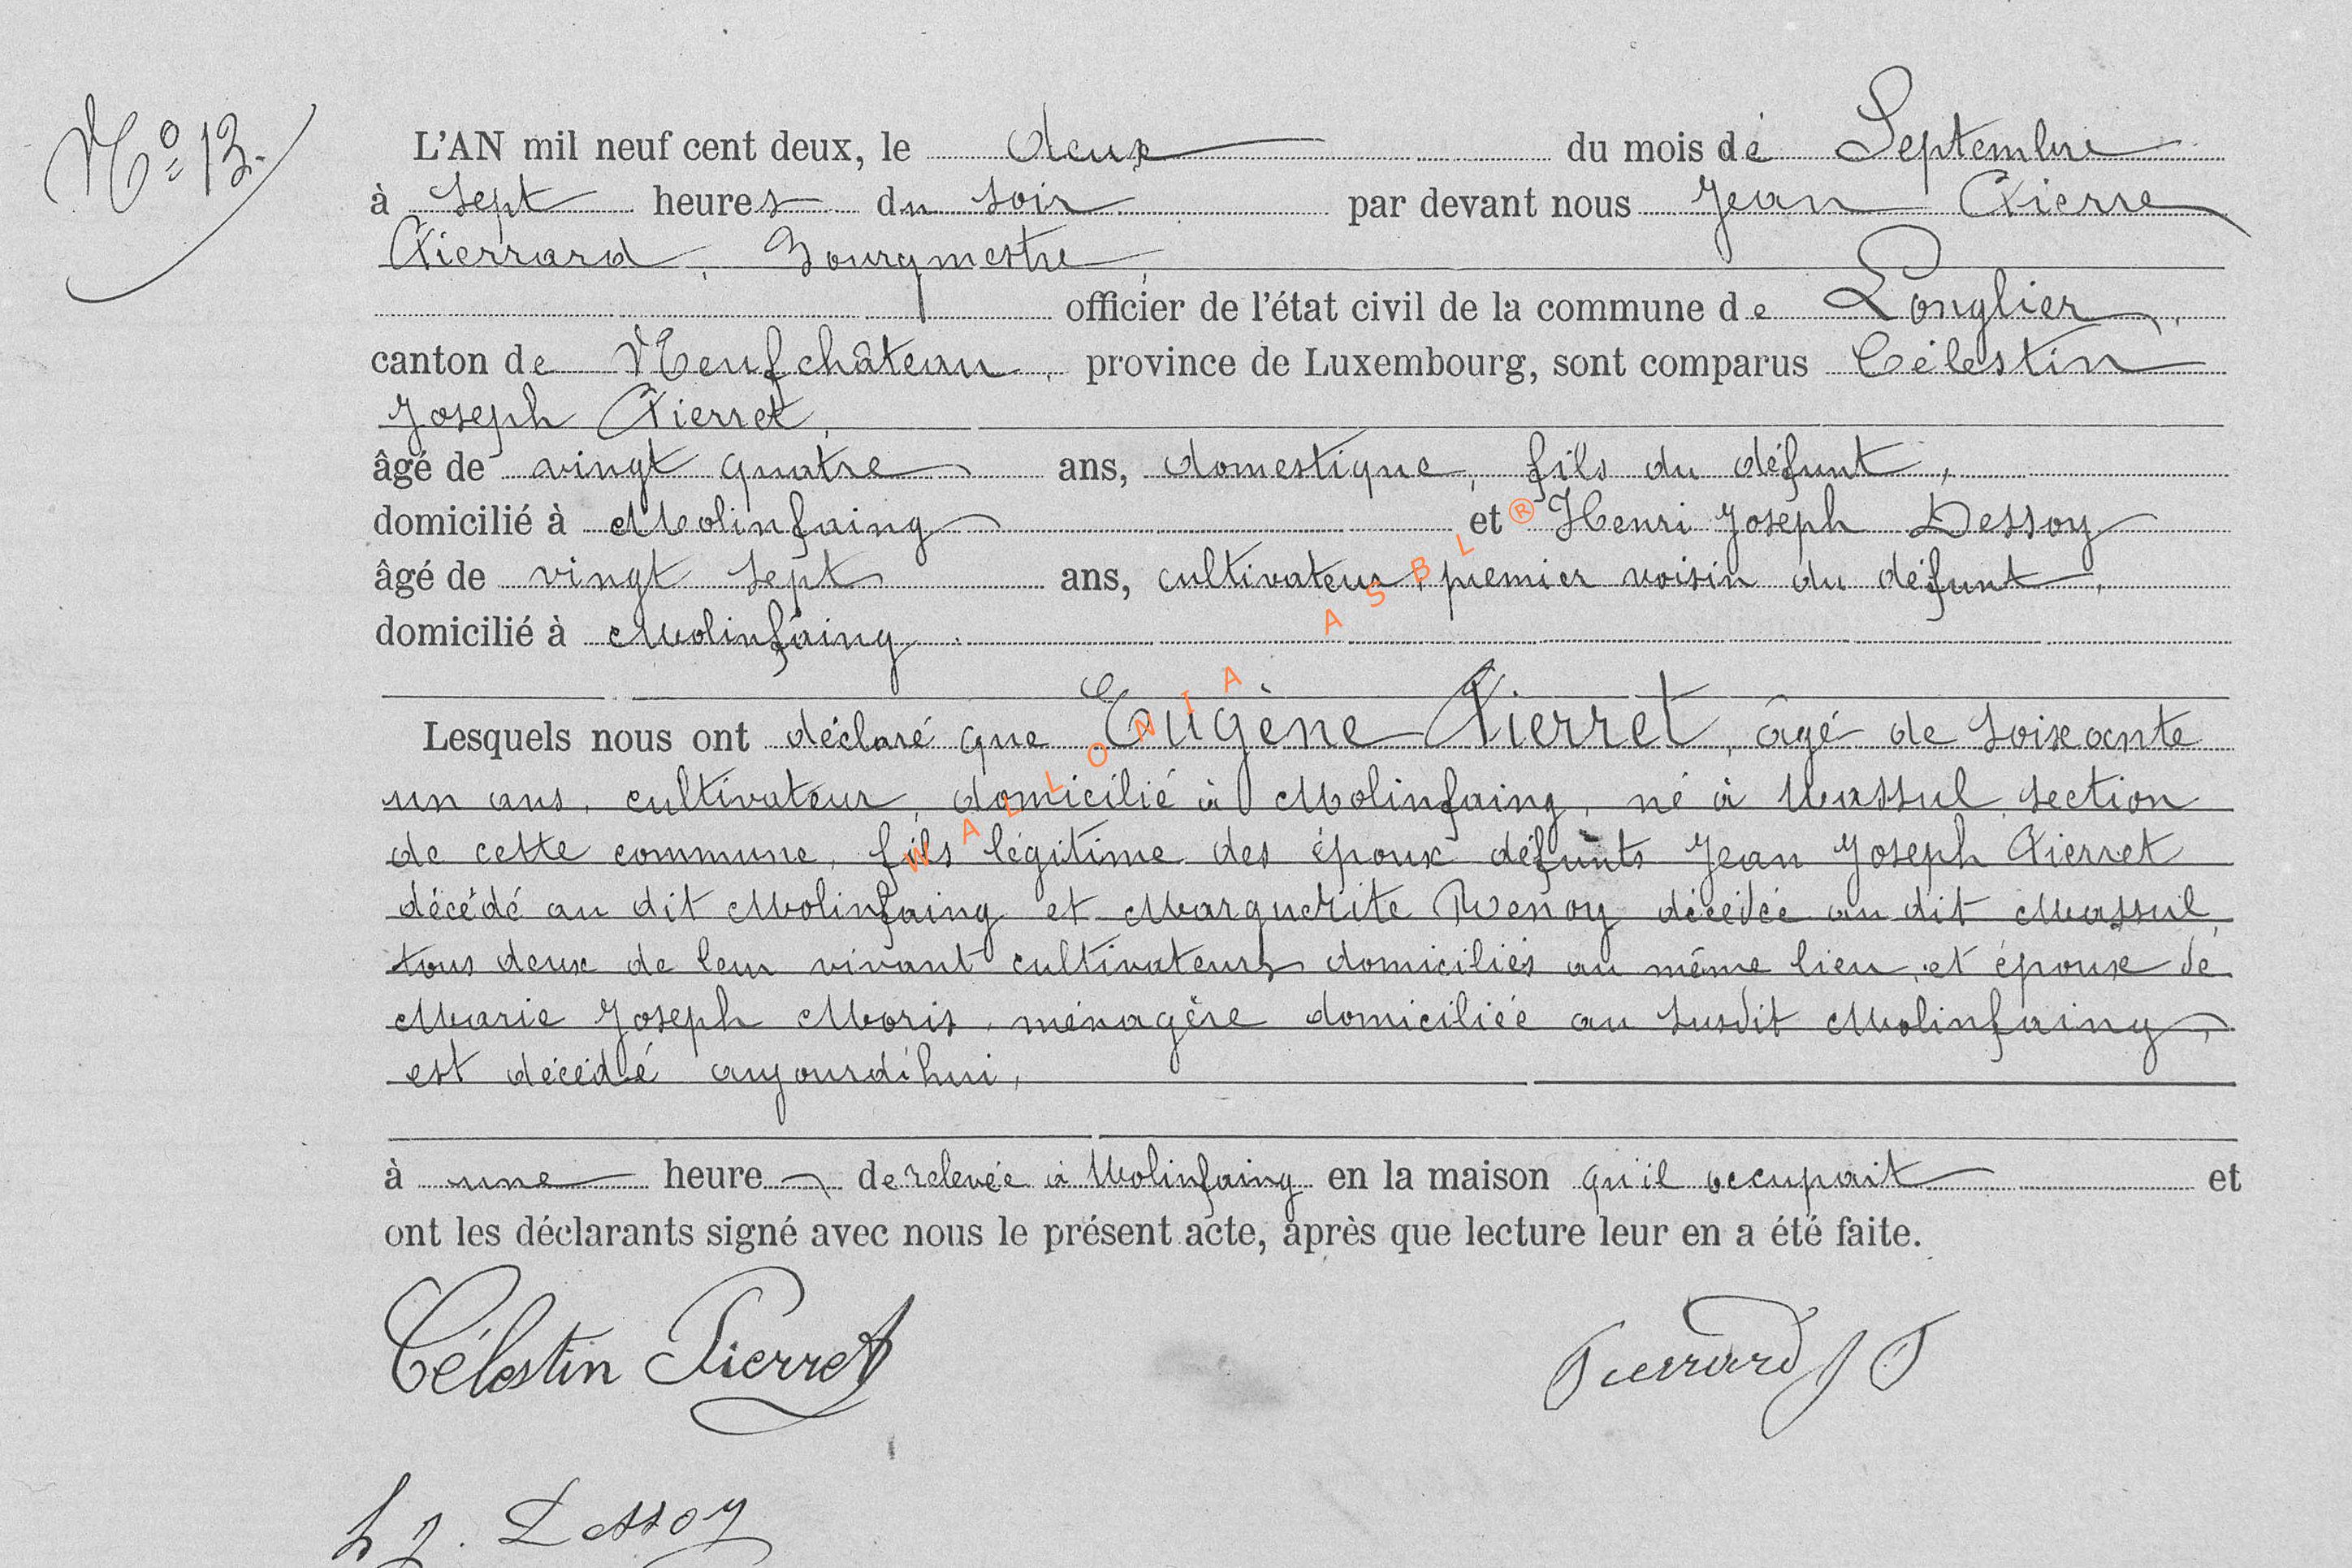 N° 13.
L'AN mil neuf cent deux, le deux du mois de Septembre
à sept heures du soir par devant nous Jean Pierre
Pierrard, Bourgmestre,
officier de l'état civil de la commune de Longlier,
canton de Neufchâteau, province de Luxembourg, sont comparus Célestin
Joseph Pierret,
âgé de vingt quatre ans, domestique, fils du défunt,
domicilié à Molinfaing et Henri Joseph Dessoy
âgé de vingt sept ans, cultivateur, premier voisin du défunt,
domicilié à Molinfaing.
Lesquels nous ont déclaré que Eugène Pierret, âgé de soixante
un ans, cultivateur, domicilié à Molinfaing, né à Massul, section
de cette commune, fils légitime des époux défunts Jean Joseph Pierret
décédé au dit Molinfaing et Marguerite Renoy décédée au dit Massul,
tous deux de leur vivant cultivateurs domiciliés au même lieu, et époux de
Marie Joseph Moris, ménagère domiciliée au susdit Molinfaing,
est décédé aujourd'hui,
à une heure de relevée à Molinfaing en la maison qu'il occupait et
ont les déclarants signé avec nous le présent acte, après que lecture leur en a été faite.
Célestin Pierret Pierrard J P
h j. Dessoy
WALLONIA ASBL ®